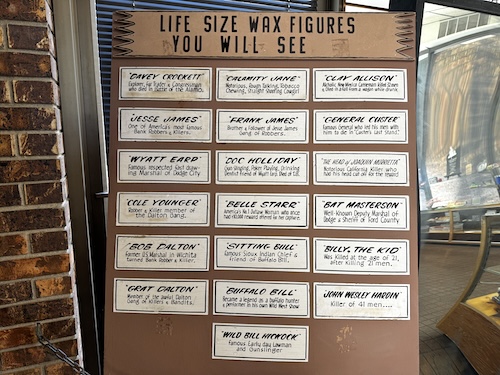 LIFE SIZE WAX FIGURES
YOU WILL SEE
"DAVEY CROCKETT"
Explorer, Fur Trader & Congressman
who died in Battle of the Alamo.
"CALAMITY JANE"
Notorious, Rough Talking, Tobacco
Chewing, Straight Shooting Cowgirl
"CLAY ALLISON"
Alcholic New Mexico Cattleman Killed
& Died in a fall from a wagon while drunk.
"JESSE JAMES"
One of America's most famous
Bank Robbers & Killers.
"FRANK JAMES"
Brother & Follower of Jesse James
Gang of Robbers.
"GENERAL CUSTER"
Famous General who led his men with
him to die in "Custer's Last Stand."
"WYATT EARP"
Famous respected fast draw-
ing Marshal of Dodge City
"DOC HOLLIDAY"
Gun Slinging, Poker Playing, Drinking
Dentist Friend of Wyatt Earp Died of T.B.
"THE HEAD of JOAQUIN MURRIETTA"
Notorious California Killer who
had his head cut off for the reward
"COLE YOUNGER"
Robber & Killer member of
the Dalton Gang.
"BELLE STARR"
America's No.1 Outlaw Woman who once
had $10,000 reward offered for her capture.
"BAT MASTERSON"
Well-Known Deputy Marshal of
Dodge & Sheriff of Ford County
"BOB DALTON"
Former US Marshal in Wichita
turned Bank Robber & Killer.
"SITTING BULL"
Famous Sioux Indian Chief &
friend of Buffalo Bill.
"BILLY, THE KID"
Was Killed at the age of 21,
after killing 21 men.
"GRAT DALTON"
Member of the awful Dalton
Gang of Killers & Bandits.
"BUFFALO BILL"
Became a legend as a buffalo hunter
& performer in his own Wild West Show
"JOHN WESLEY HARDIN"
Killer of 41 men....
"WILD BILL HICKOCK"
Famous Early day Lawman
and Gunslinger